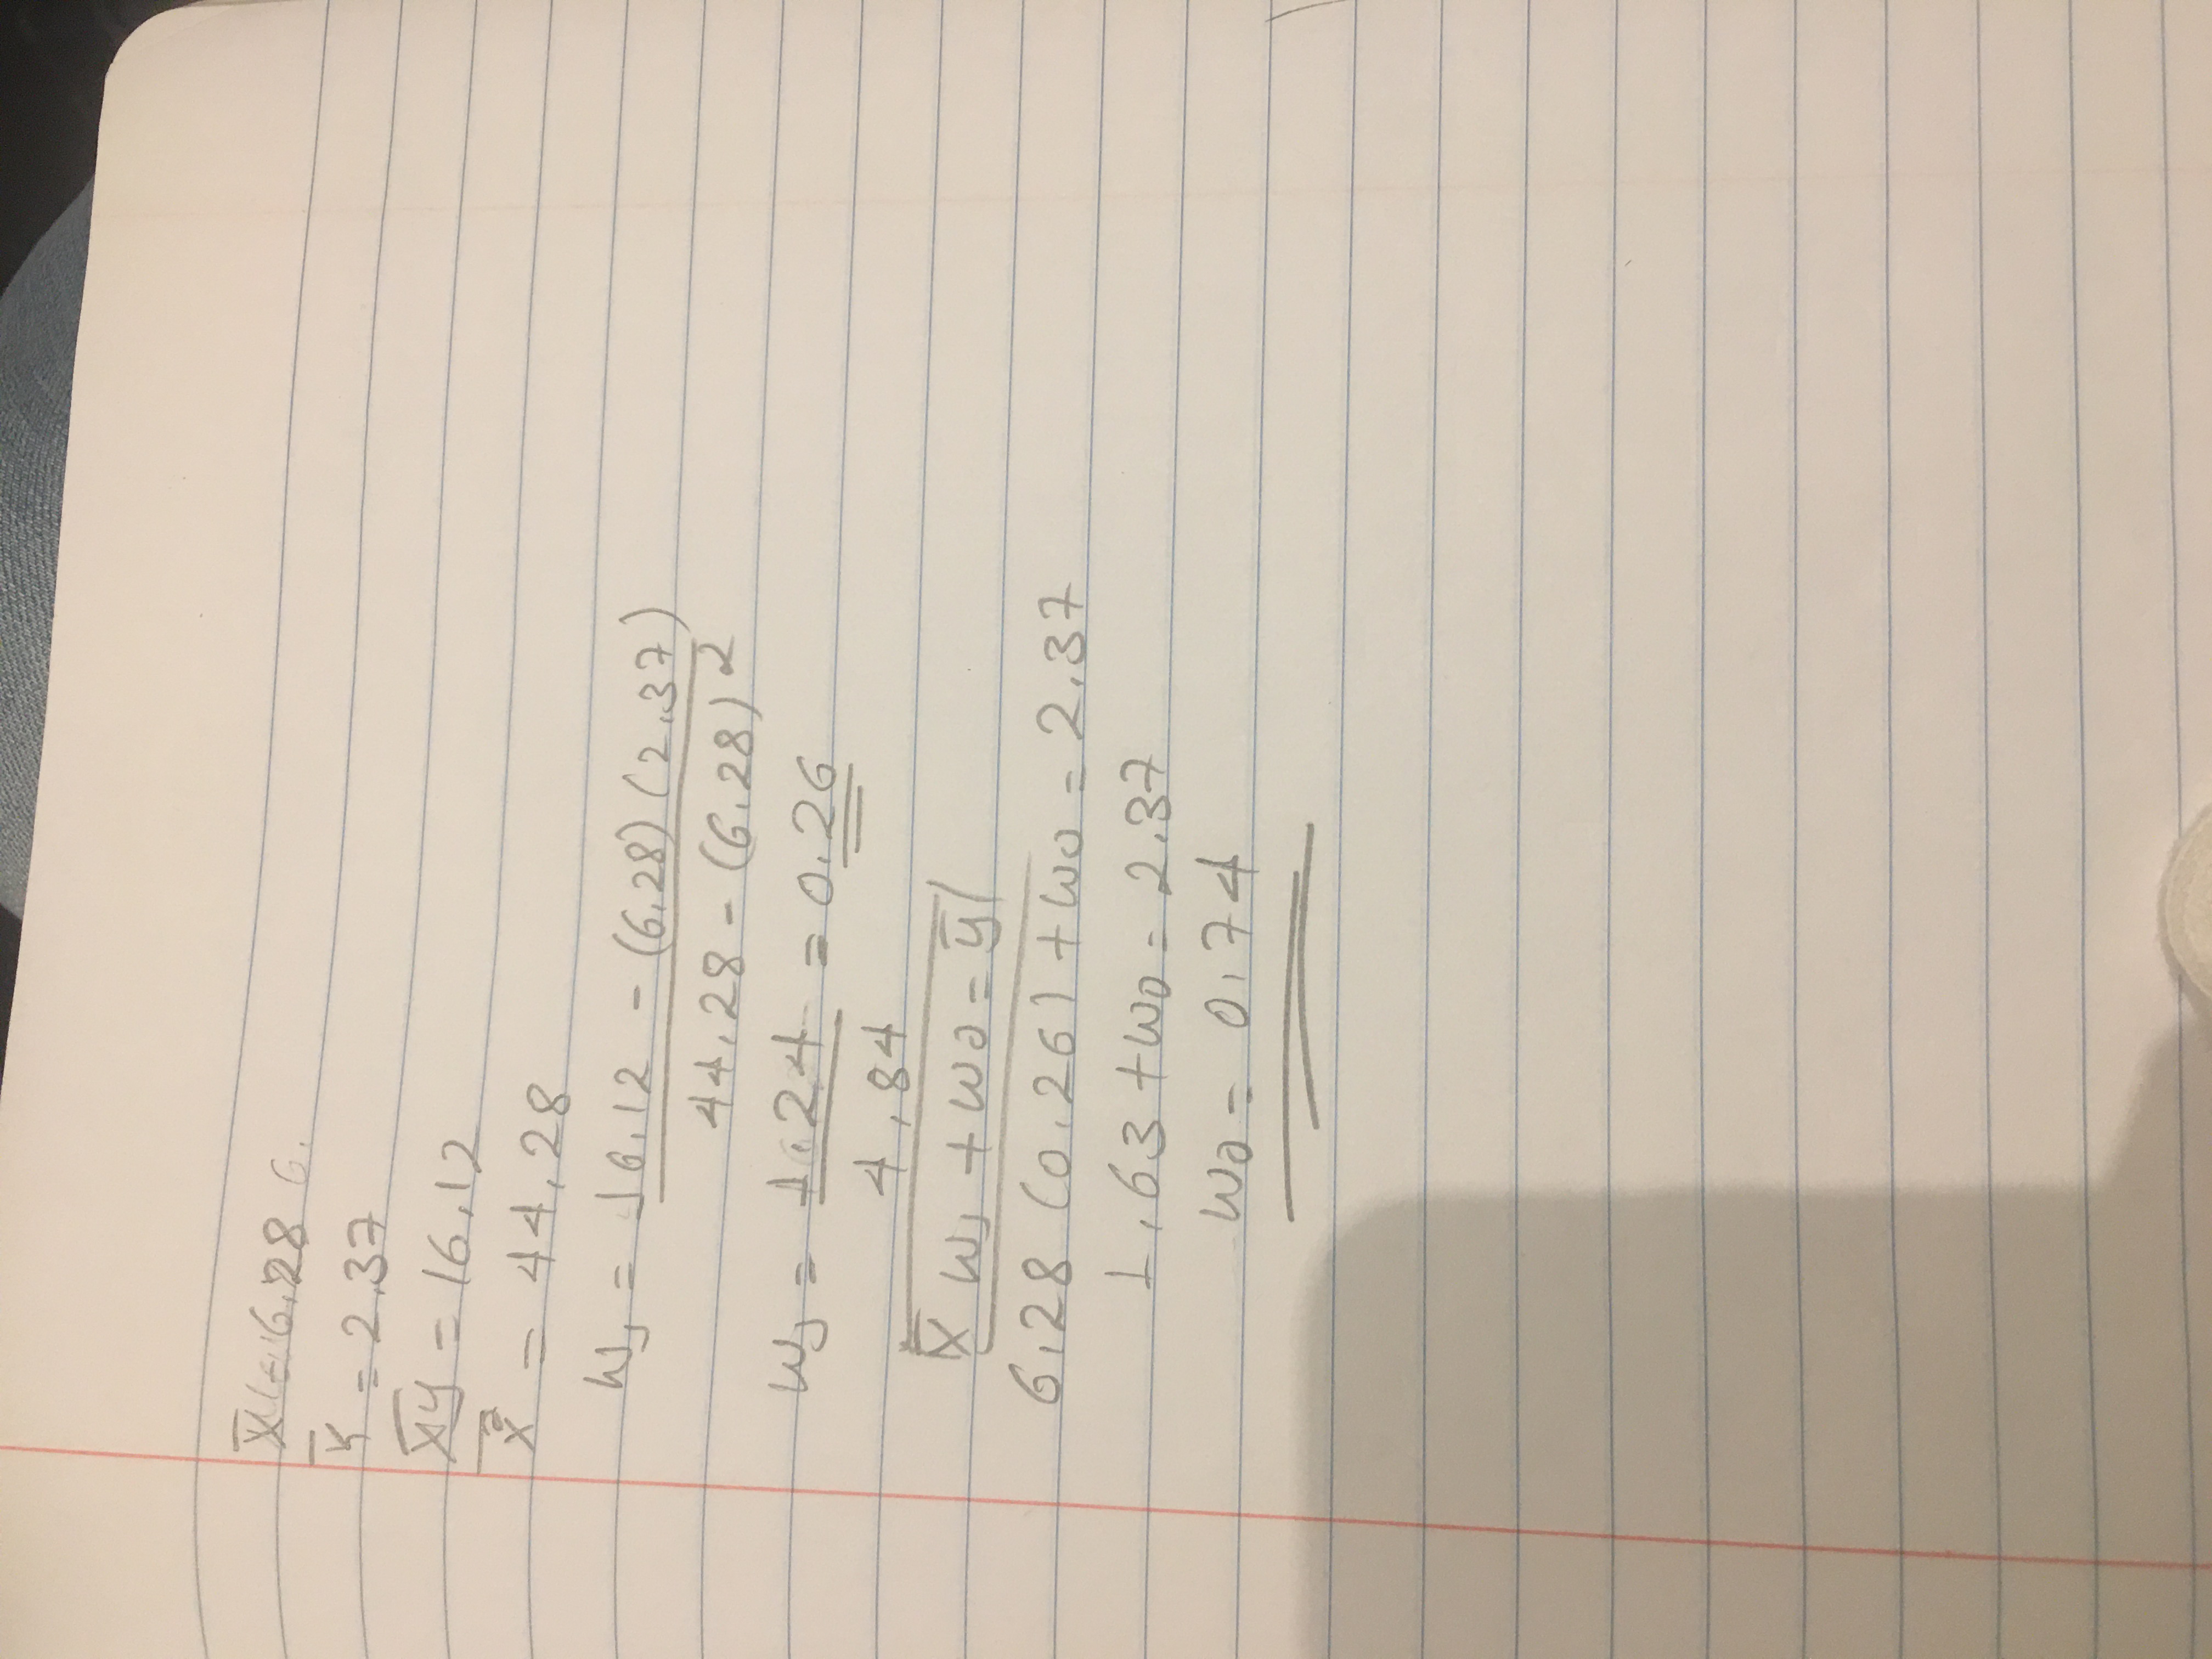 X̅ = 6.28 6.
Y̅ = 2.37
X̅y̅ = 16.12
x̅² = 44.28
W₁ = 16.12 - (6.28)(2.37)
44.28 - (6.28)²
W₁ = 1.24 = 0.26
4.84
X̅ W₁ + W0 = y̅
6.28 (0.26) + W0 = 2.37
1.63 + W0 = 2.37
W0 = 0.74